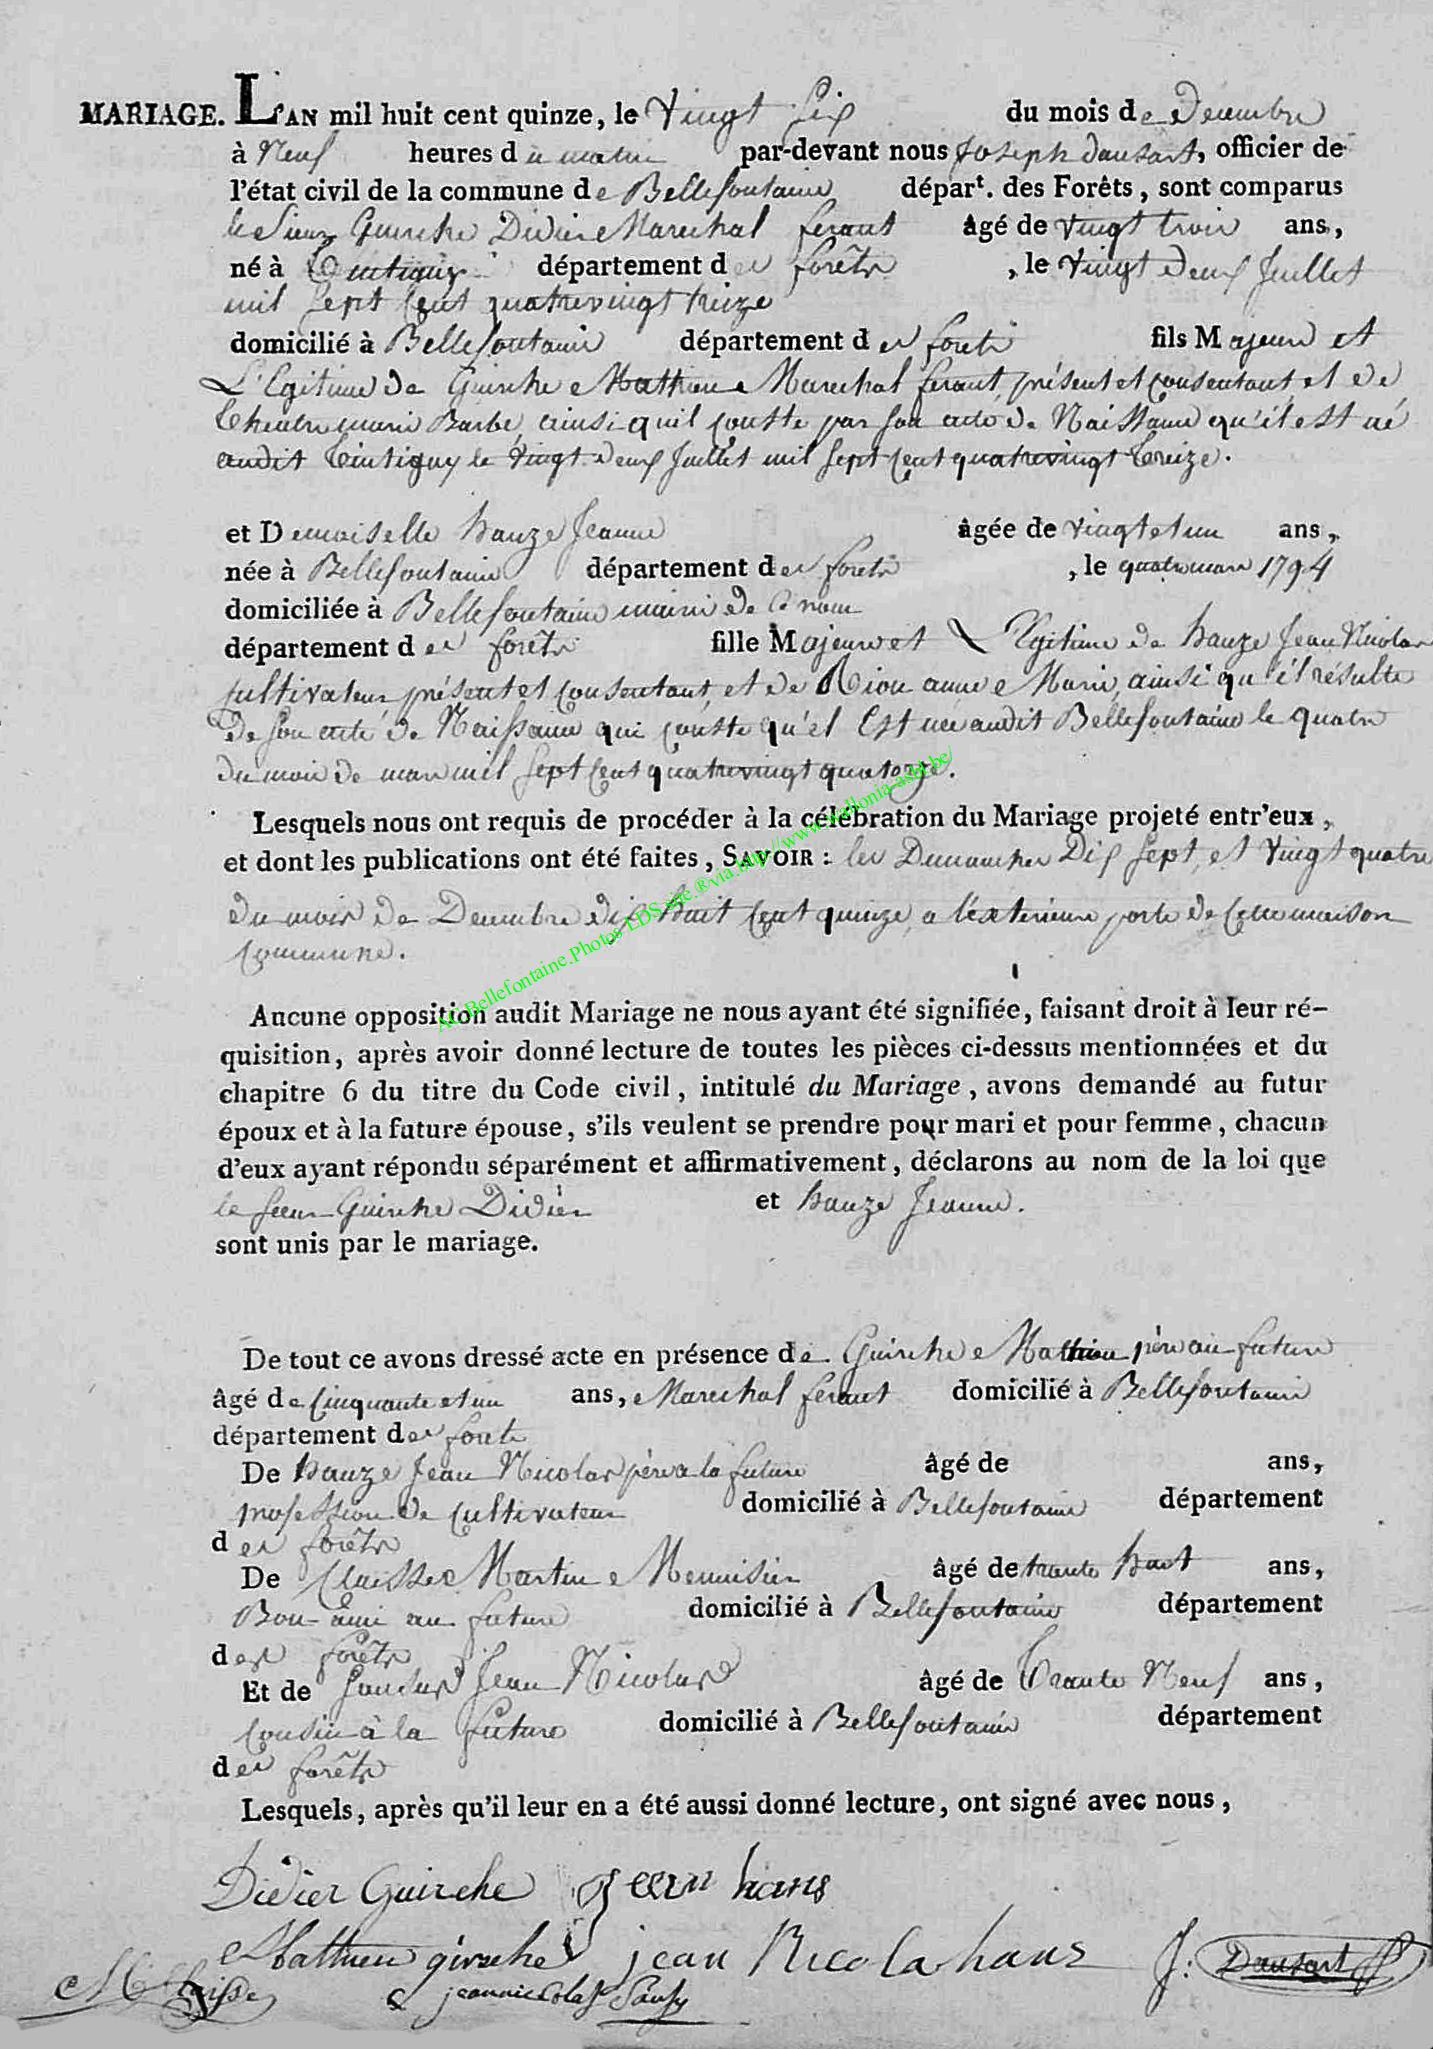 MARIAGE. L'AN mil huit cent quinze, le Vingt Six du mois de Decembre
à Neuf heures du matin par-devant nous Joseph Dausart, officier de
l'état civil de la commune de Bellefontaine départ. des Forêts, sont comparus
le Sieur Guirche Didier Marechal feraut âgé de vingt trois ans,
né à Tintigny département des forêts, le vingt deux Juillet
mil sept cent quatrevingt treize
domicilié à Bellefontaine département des forets fils Majeur et
L'Egitime de Guirche Matthieu Marechal feraut, présent et consentant et de
marie Barbe, ainsi qu'il conste par son acte de Naissance qu'il est né
audit Tintigny le vingt deux Juillet mil sept cent quatrevingt treize.
et Demoiselle hauze Jeanne âgée de vingt et un ans,
née à Bellefontaine département des forets, le quatre mars 1794
domiciliée à Bellefontaine mairie de ce nom
département des forêts fille Majeure et Legitime de hauze Jean Nicolas
cultivateur présent et consentant, et de Riou anne Marie, ainsi qu'il résulte
de son acte de Naissance qui conste qu'el Est née audit Bellefontaine le quatre
du mois de mars mil sept cent quatrevingt quatorze.
Lesquels nous ont requis de procéder à la célébration du Mariage projeté entr'eux,
et dont les publications ont été faites, SAVOIR : les Dimanches Dix sept et vingt quatre
du mois de Decembre dix huit cent quinze, a l'exterieure porte de cette maison
commune.
Aucune opposition audit Mariage ne nous ayant été signifiée, faisant droit à leur ré-
quisition, après avoir donné lecture de toutes les pièces ci-dessus mentionnées et du
chapitre 6 du titre du Code civil, intitulé du Mariage, avons demandé au futur
époux et à la future épouse, s'ils veulent se prendre pour mari et pour femme, chacun
d'eux ayant répondu séparément et affirmativement, déclarons au nom de la loi que
le sieur Guirche Didier et hauze Jeanne.
sont unis par le mariage.
De tout ce avons dressé acte en présence de Guirche Mathieu père au future
âgé de cinquante et un ans, Marechal feraut domicilié à Bellefontaine
département des forets
De hauze Jean Nicolas père a la future âgé de ans,
profession de cultivateur domicilié à Bellefontaine département
des forêts
De Claisse Martin Menuisier âgé de trante huit ans,
Bon ami au future domicilié à Bellefontaine département
des forêts
Et de Jean Nicolas âgé de Trante Neuf ans,
cousin à la future domicilié à Bellefontaine département
des forêts
Lesquels, après qu'il leur en a été aussi donné lecture, ont signé avec nous,
Didier Guirche Jean hans
Matthieu girsche jean Nicola hans J: Dausart
M Claisse jean nicolas
AC.Bellefontaine.Photos LDS site.®via.http://www.wallonia-asbl.be/